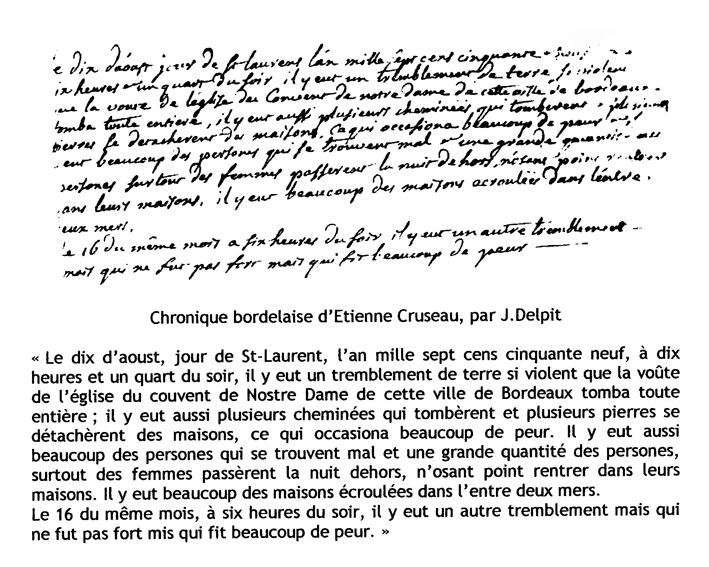 e dix daoust jour de St laurens lan mille sept cens cinquante
ix heures & un quart du soir il y eut un tremblement de terre si violent
que la voute de leglise du Couvent de notre dame de cette ville de bordeaux
tomba toute entiere, il y eut aussi plusieurs cheminées qui tomberent & plusieurs
pierres se detacherent des maisons, ce qui occasiona beaucoup de peur
eut beaucoup des persones qui se trouvent mal & une grande quantité
persones surtout des femmes passerent la nuit dehors, n'osant point
ans leurs maisons. il y eut beaucoup des maisons acroulées dans lentre
eux mers.
le 16 du même mois a six heures du soir il y eut un autre tremblement
mais qui ne fut pas fort mais qui fit beaucoup de peur
Chronique bordelaise d'Etienne Cruseau, par J.Delpit
« Le dix d'aoust, jour de St-Laurent, l'an mille sept cens cinquante neuf, à dix
heures et un quart du soir, il y eut un tremblement de terre si violent que la voûte
de l'église du couvent de Nostre Dame de cette ville de Bordeaux tomba toute
entière ; il y eut aussi plusieurs cheminées qui tombèrent et plusieurs pierres se
détachèrent des maisons, ce qui occasiona beaucoup de peur. Il y eut aussi
beaucoup des persones qui se trouvent mal et une grande quantité des persones,
surtout des femmes passèrent la nuit dehors, n'osant point rentrer dans leurs
maisons. Il y eut beaucoup des maisons écroulées dans l'entre deux mers.
Le 16 du même mois, à six heures du soir, il y eut un autre tremblement mais qui
ne fut pas fort mis qui fit beaucoup de peur. »